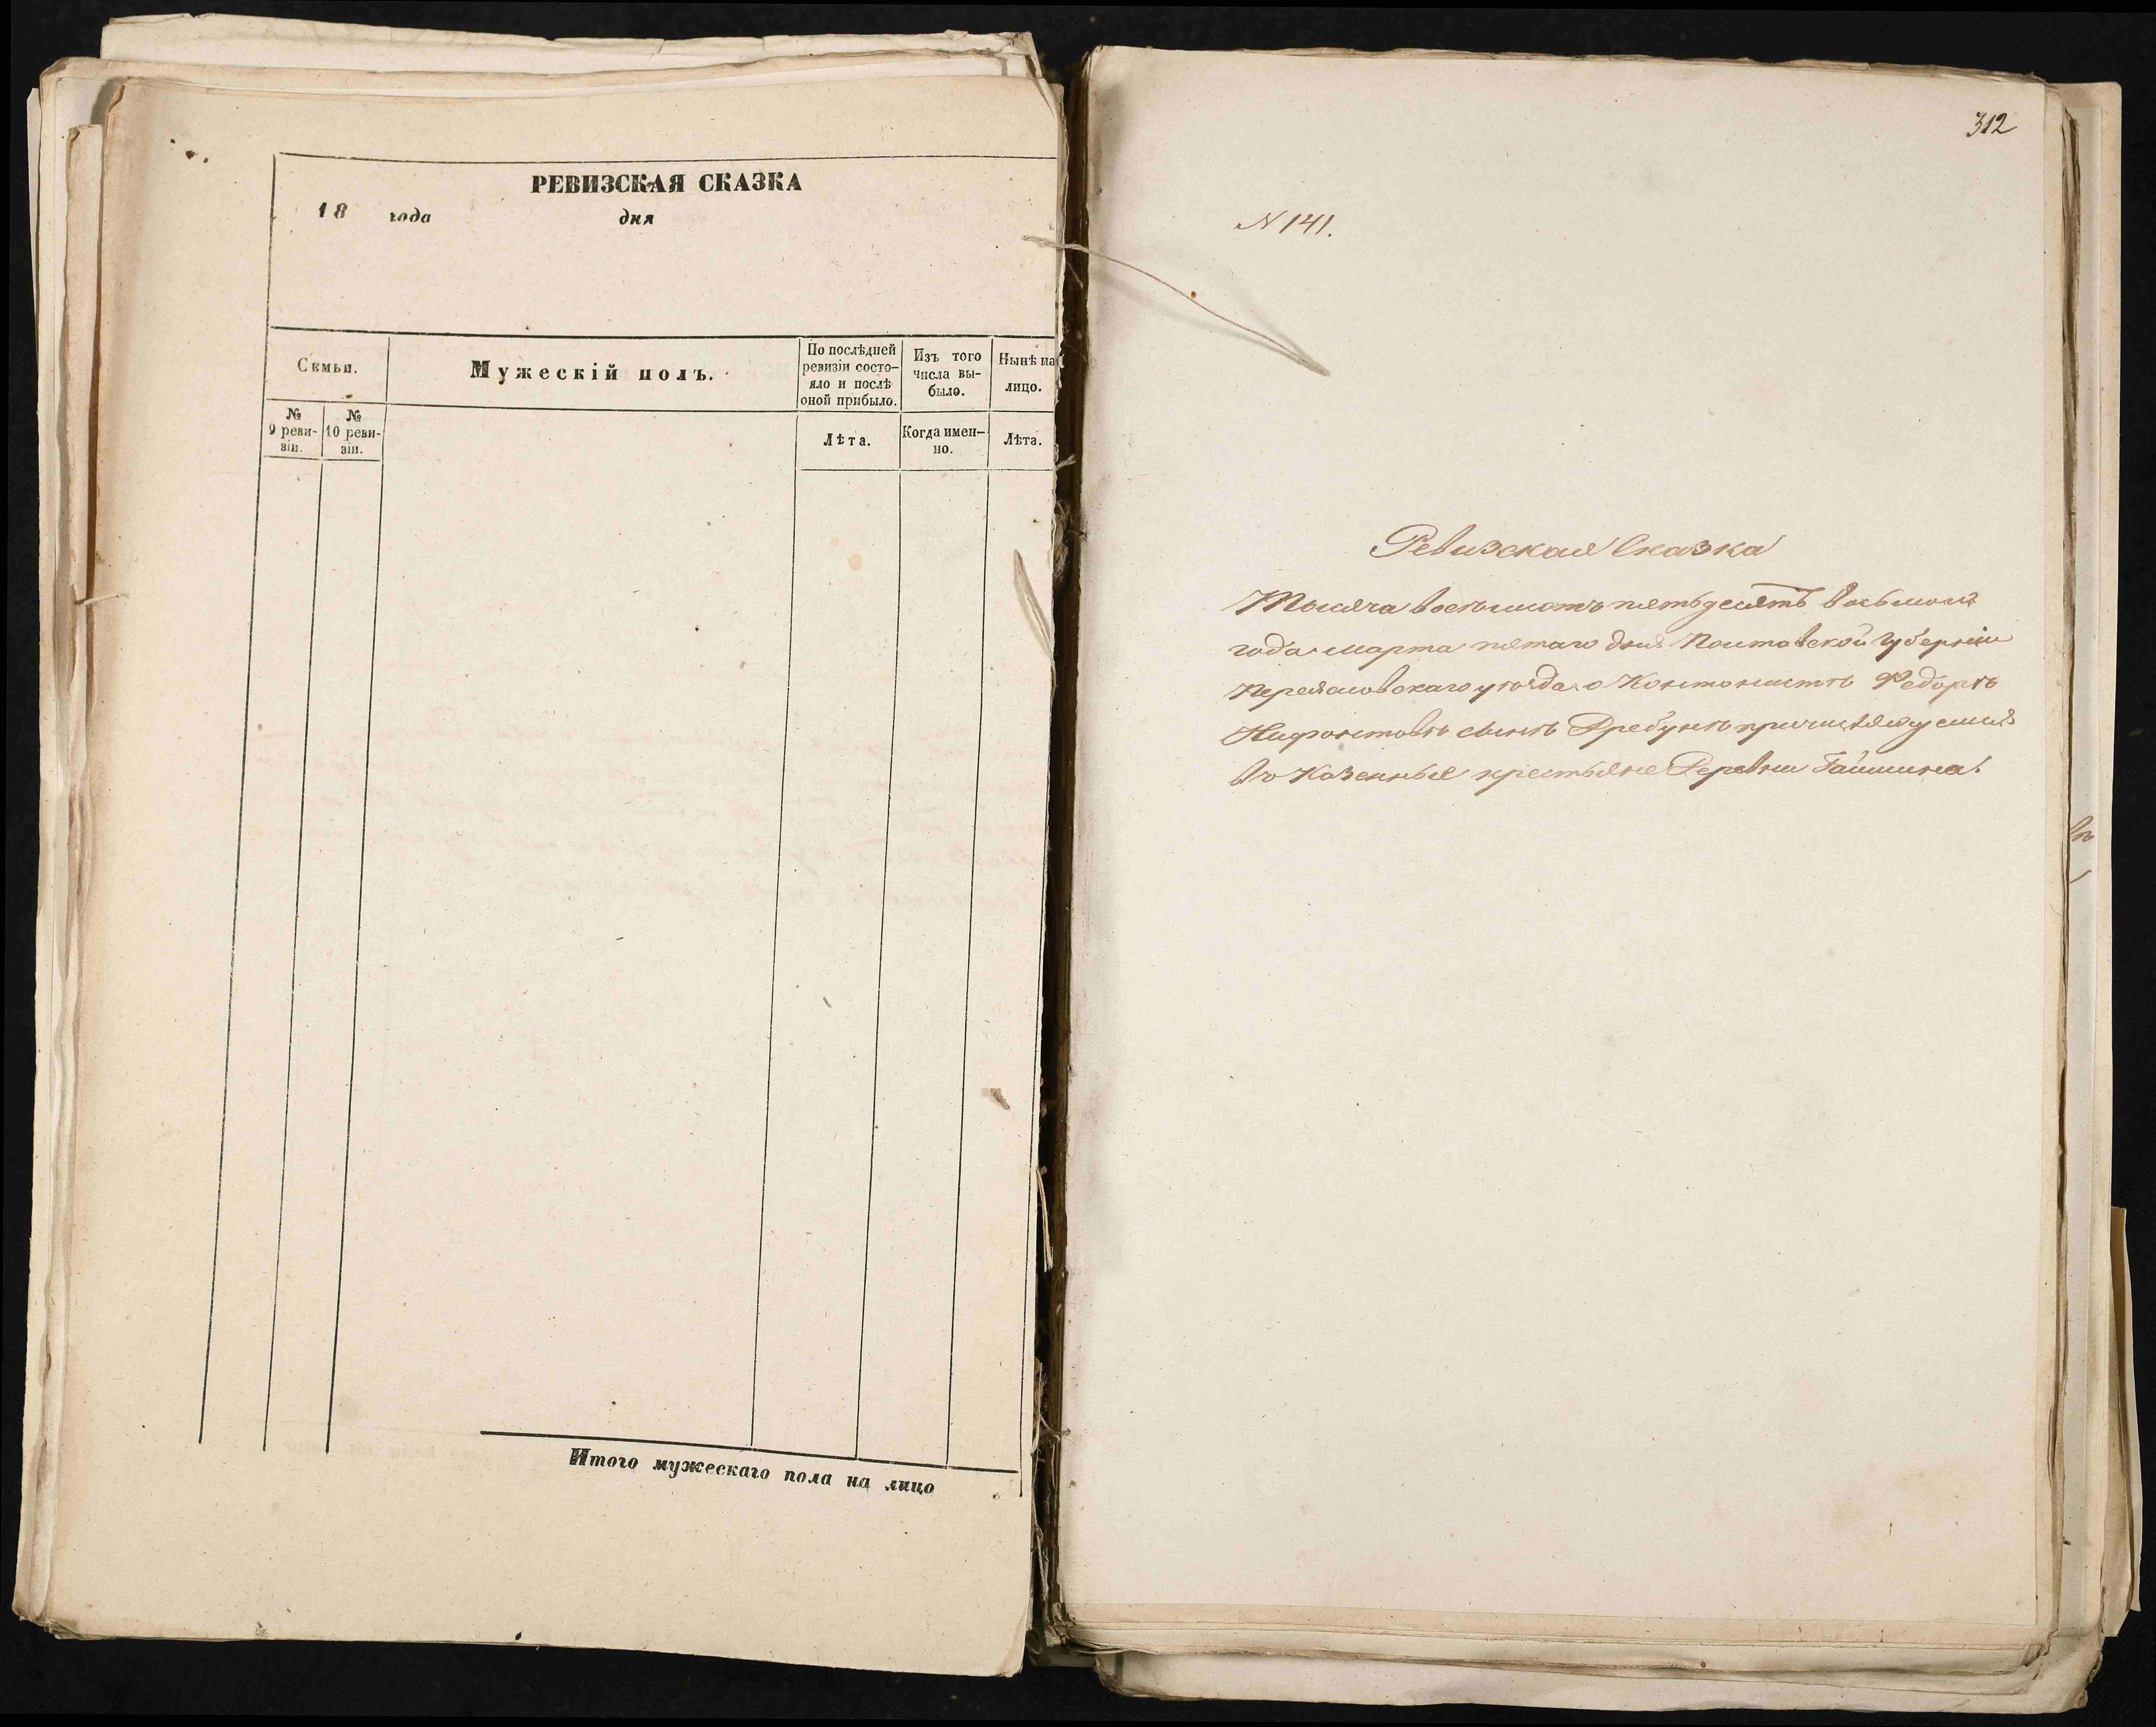 РЕВИЗСКАЯ СКАЗКА
18 года дня
Семьи.
Мужескій полъ.
По послѣдней ревизіи состо-
яло и послѣ
оной прибыло.
Изъ того
числа вы-
было.
Нынѣ на
лицо.
№
9 реви-
зіи.
№
10 реви-
зіи.
Лѣта.
Когда имен-
но.
Лѣта.
Итого мужескаго пола на лицо
312
N 141.
Ревизская Сказка
Тысяча восемьсотъ пятьдесятъ восьмого
года марта пятаго дня Полтавской Губерніи
Переяславскаго уѣзда о Кантонистѣ Федорѣ
сынѣ
въ Казенные крестьяне Деревни Гайшина.